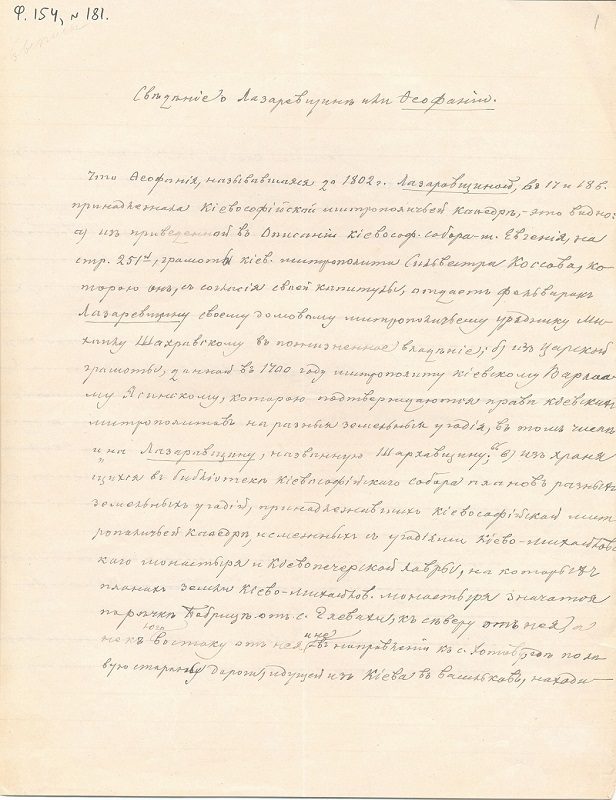 Ф. 154, № 181.
1
Свѣдѣніе о Лазаревщинѣ или Ѳеофаніи.
Что Ѳеофанія, называвшаяся до 1802 г. Лазаревщиной, въ 17 и 18 в.
принадлежала Кіевософійской митрополичьей каѳедрѣ, – это видно:
а) изъ приведенной въ Описаніи кіевософ. собора м. Евгенія, на
стр. 251й, грамоты кіев. митрополита Сильвестра Коссова, ко-
торою онъ, съ согласія своей капитулы, отдаетъ фольварокъ
Лазаревщину своему домовому митрополичьему уряднику Ми-
хаилу Шахравскому въ пожизненное владѣніе; б) изъ царской
грамоты, данной въ 1700 году митрополиту кіевскому Варлаа-
му Ясинскому, которою подтверждаются права кіевскихъ
митрополитовъ на разныя земельныя угодія, въ томъ числѣ
и на Лазаревщину, названную Шархавщину; в) изъ храня
щихся въ библіотекѣ Кіевософійскаго собора плановъ разныхъ
земельныхъ угодій, принадлежавшихъ Кіевософійской мит
рополичьей каѳедрѣ, и смежныхъ съ угодіями Кіево-михайловс
каго монастыря и Кіевопечерской лавры, на которыхъ
планахъ земли Кіево-михайлов. монастыря значатся
по рѣчкѣ Бобрицѣ отъ с. Глевахи, къ сѣверу отъ нея, а
не къ юго востоку отъ нея и не въ направленіи къ с. Хотову, гдѣ по лѣ
вую сторону дороги, идущей изъ Кіева въ Васильковъ, находи–